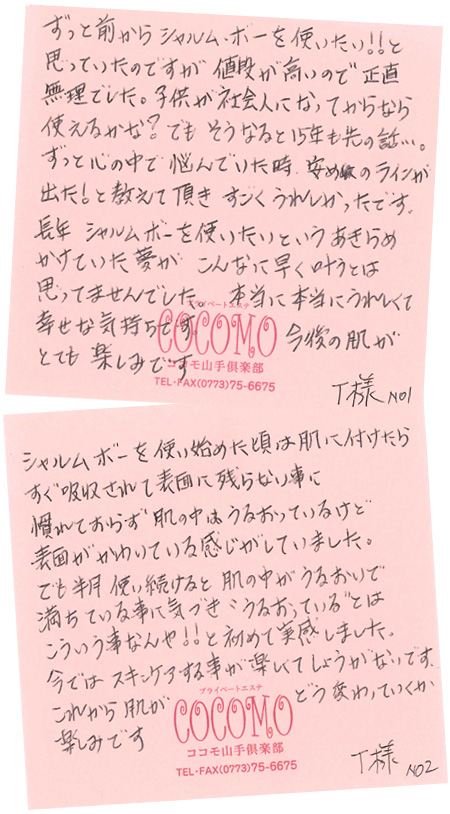 ずっと前から シャルム・ボーを使いたい!!と
思っていたのですが 値段が高いので 正直
無理でした。子供が社会人になってからなら
使えるかな? でも そうなると15年も先の話…。
ずっと心の中で 悩んでいた時、安めのラインが
出た!と教えて頂き すごくうれしかったです。
長年 シャルムボーを使いたいというあきらめ
かけていた夢が こんなに早く叶うとは
思ってませんでした。 本当に本当にうれしくて
プライベートエステ
幸せな気持ちです。 今後の肌が
COCOMO
とても 楽しみです
ココモ山手倶楽部
TEL・FAX(0773)75-6675
T様 NO1
シャルム ボーを使い始めた頃は肌に付けたら
すぐ吸収されて表面に残らない事に
慣れておらず 肌の中はうるおっているけど
表面がかわいている感じがしていました。
でも半月 使い続けると 肌の中がうるおいで
満ちている事に気づき "うるおっている"とは
こういう事なんや!!と初めて実感しました。
今では スキンケアする事が楽しくてしょうがないです。
プライベートエステ
これから 肌が どう変わっていくか
COCOMO
楽しみです
ココモ山手倶楽部
TEL・FAX(0773)75-6675
T様 NO2